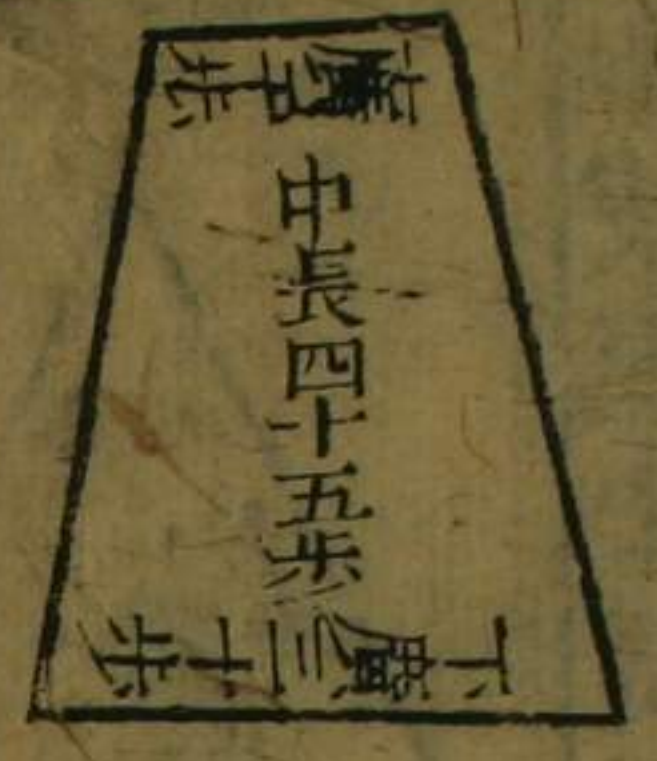 上廣十步
中長四十五步
下廣三十步